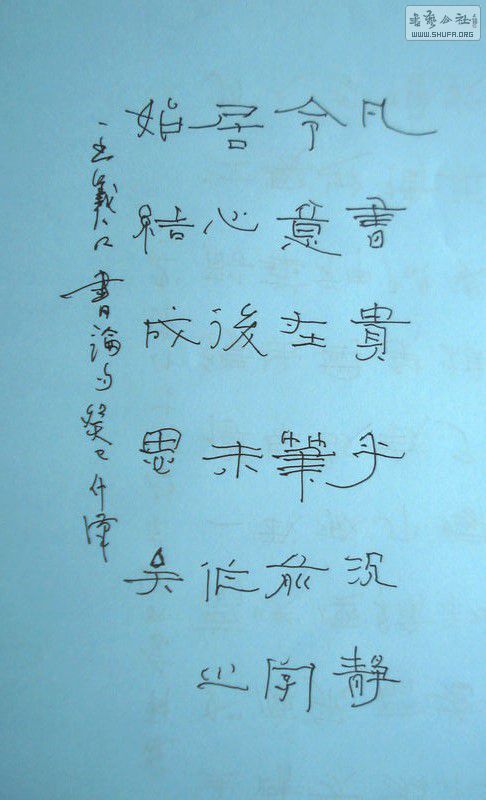 書藝公社
WWW.SHUFA.ORG
凡書貴乎沉靜
令意在筆前字
居心後未作之
始結成思矣
王羲之書論句癸巳